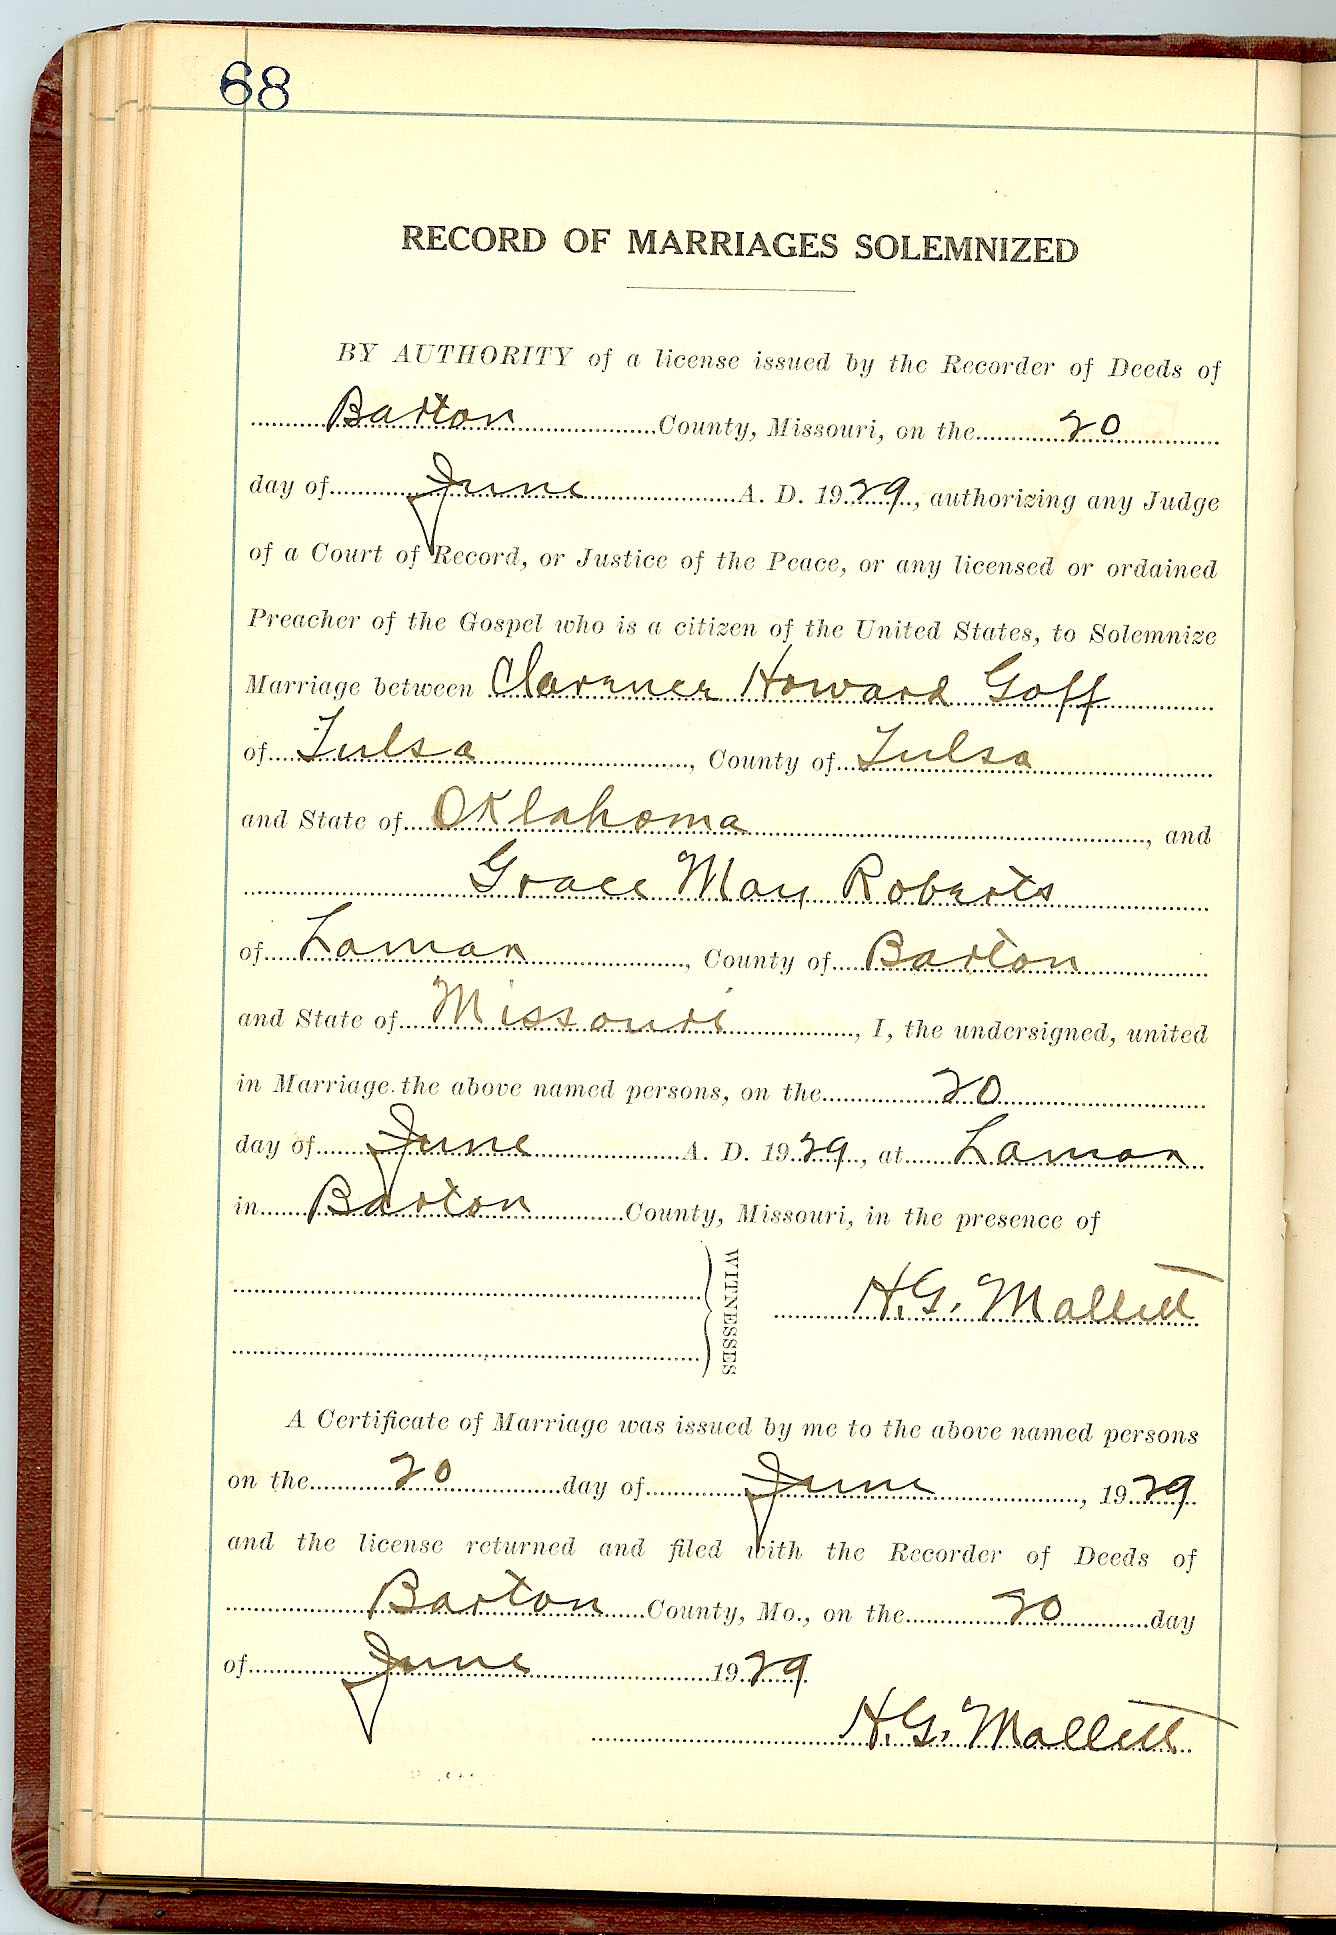 68
RECORD OF MARRIAGES SOLEMNIZED
BY AUTHORITY of a license issued by the Recorder of Deeds of
Barton County, Missouri, on the 20
day of June A. D. 1929, authorizing any Judge
of a Court of Record, or Justice of the Peace, or any licensed or ordained
Preacher of the Gospel who is a citizen of the United States, to Solemnize
Marriage between Clarence Howard Goff
of Tulsa, County of Tulsa
and State of Oklahoma, and
Grace May Roberts
of Lamar, County of Barton
and State of Missouri, I, the undersigned, united
in Marriage the above named persons, on the 20
day of June A. D. 1929, at Lamar
in Barton County, Missouri, in the presence of
WITNESSES
H.G. Mallett
A Certificate of Marriage was issued by me to the above named persons
on the 20 day of June, 1929
and the license returned and filed with the Recorder of Deeds of
Barton County, Mo., on the 20 day
of June 1929
H.G. Mallett